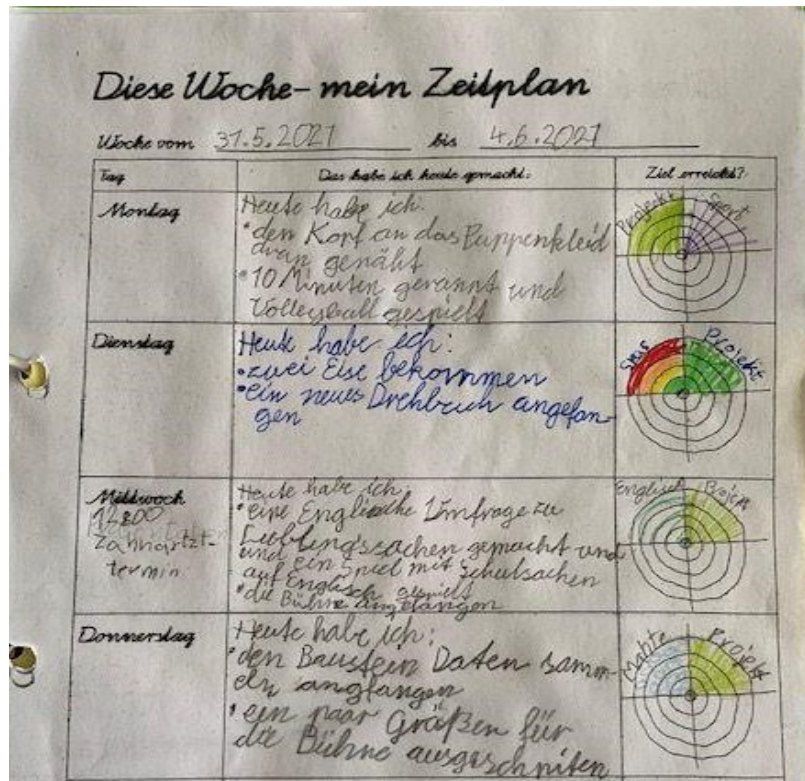 Diese Woche – mein Zeitplan
Woche vom 31.5.2021 bis 4.6.2021
Tag Das habe ich heute gemacht: Ziel erreicht?
Montag
Heute habe ich:
• den Kopf an das Puppenkleid
dran genäht
• 10 Minuten gerannt und
Volleyball gespielt
Projekt Sport
Dienstag
Heute habe ich:
• zwei Eise bekommen
• ein neues Drehbuch angefan-
gen
Projekt
Mittwoch
Zahnartzt-
termin
Heute habe ich:
• eine Englische Umfrage zu
Lieblingssachen gemacht und
und ein Spiel mit Schulsachen
auf Englisch gespielt
• die Bühne angfangen
Englisch Projekt
Donnerstag
Heute habe ich:
• den Baustein Daten samm-
eln angfangen
• ein paar Gräßen für
die Bühne ausgeschniten
Mahte Projekt